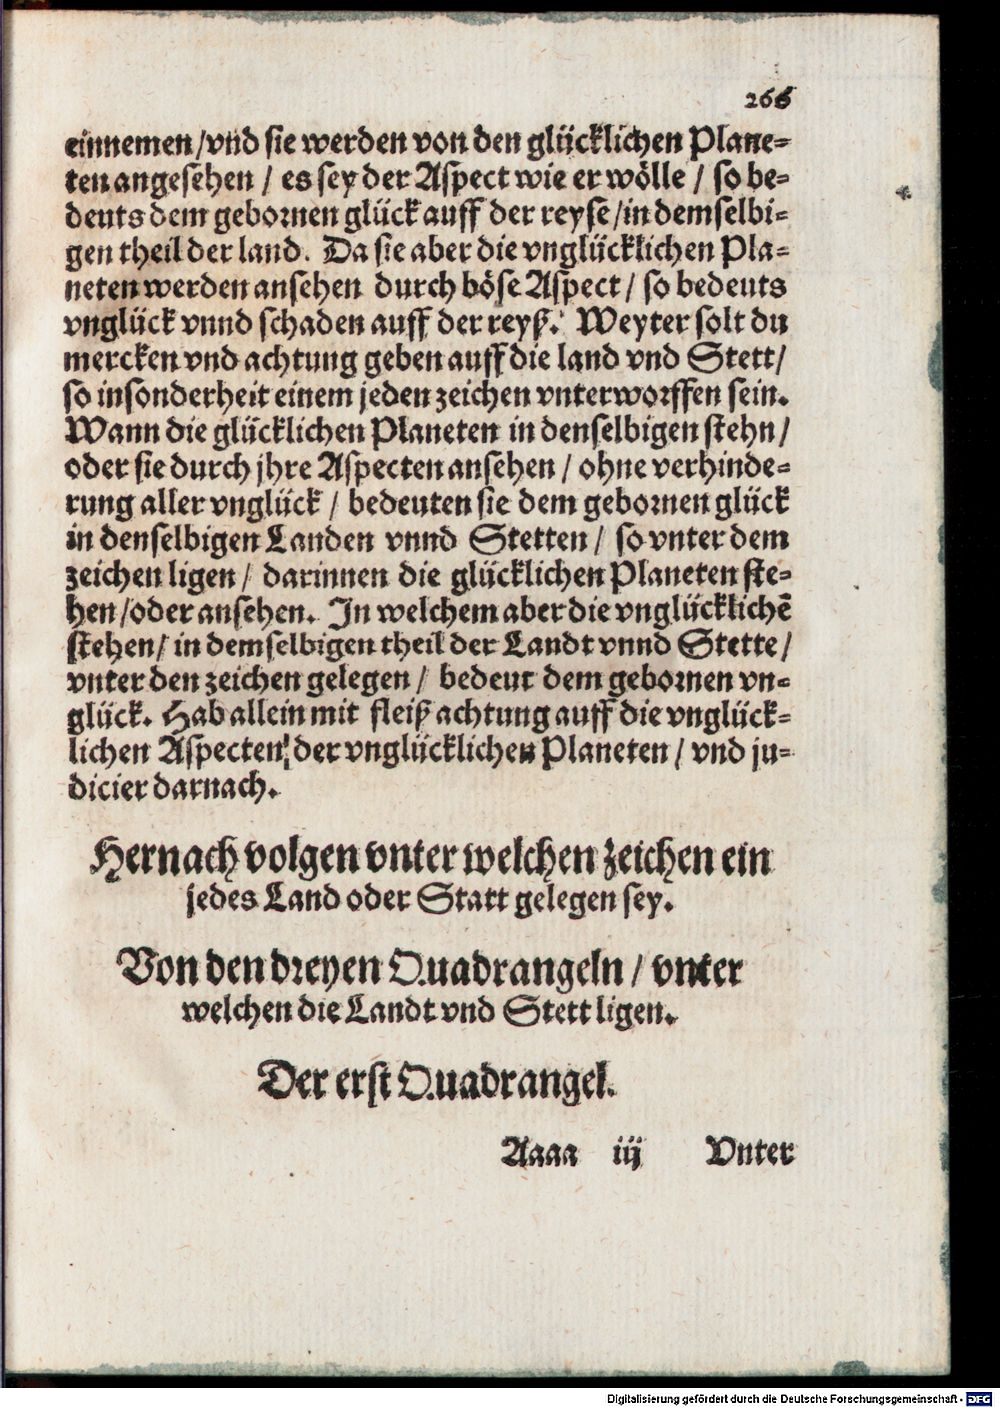 266
einnemen / vnd sie werden von den glücklichen Plane-
ten angesehen / es sey der Aspect wie er wölle / so be-
deuts dem gebornen glück auff der reyse / in demselbi-
gen theil der land. Da sie aber die vnglücklichen Pla-
neten werden ansehen durch böse Aspect / so bedeuts
vnglück vnnd schaden auff der reyß. Weyter solt du
mercken vnd achtung geben auff die land vnd Stett /
so insonderheit einem jeden zeichen vnterworffen sein.
Wann die glücklichen Planeten in denselbigen stehn /
oder sie durch jhre Aspecten ansehen / ohne verhinde-
rung aller vnglück / bedeuten sie dem gebornen glück
in denselbigen Landen vnnd Stetten / so vnter dem
zeichen ligen / darinnen die glücklichen Planeten ste-
hen / oder ansehen. In welchem aber die vnglücklichē
stehen / in demselbigen theil der Landt vnnd Stette /
vnter den zeichen gelegen / bedeut dem gebornen vn-
glück. Hab allein mit fleiß achtung auff die vnglück-
lichen Aspecten der vnglücklichen Planeten / vnd ju-
dicier darnach.
Hernach volgen vnter welchen zeichen ein
jedes Land oder Statt gelegen sey.
Von den dreyen Quadrangeln / vnter
welchen die Landt vnd Stett ligen.
Der erst Quadrangel.
Aaaa iij Vnter
Digitalisierung gefördert durch die Deutsche Forschungsgemeinschaft - DFG